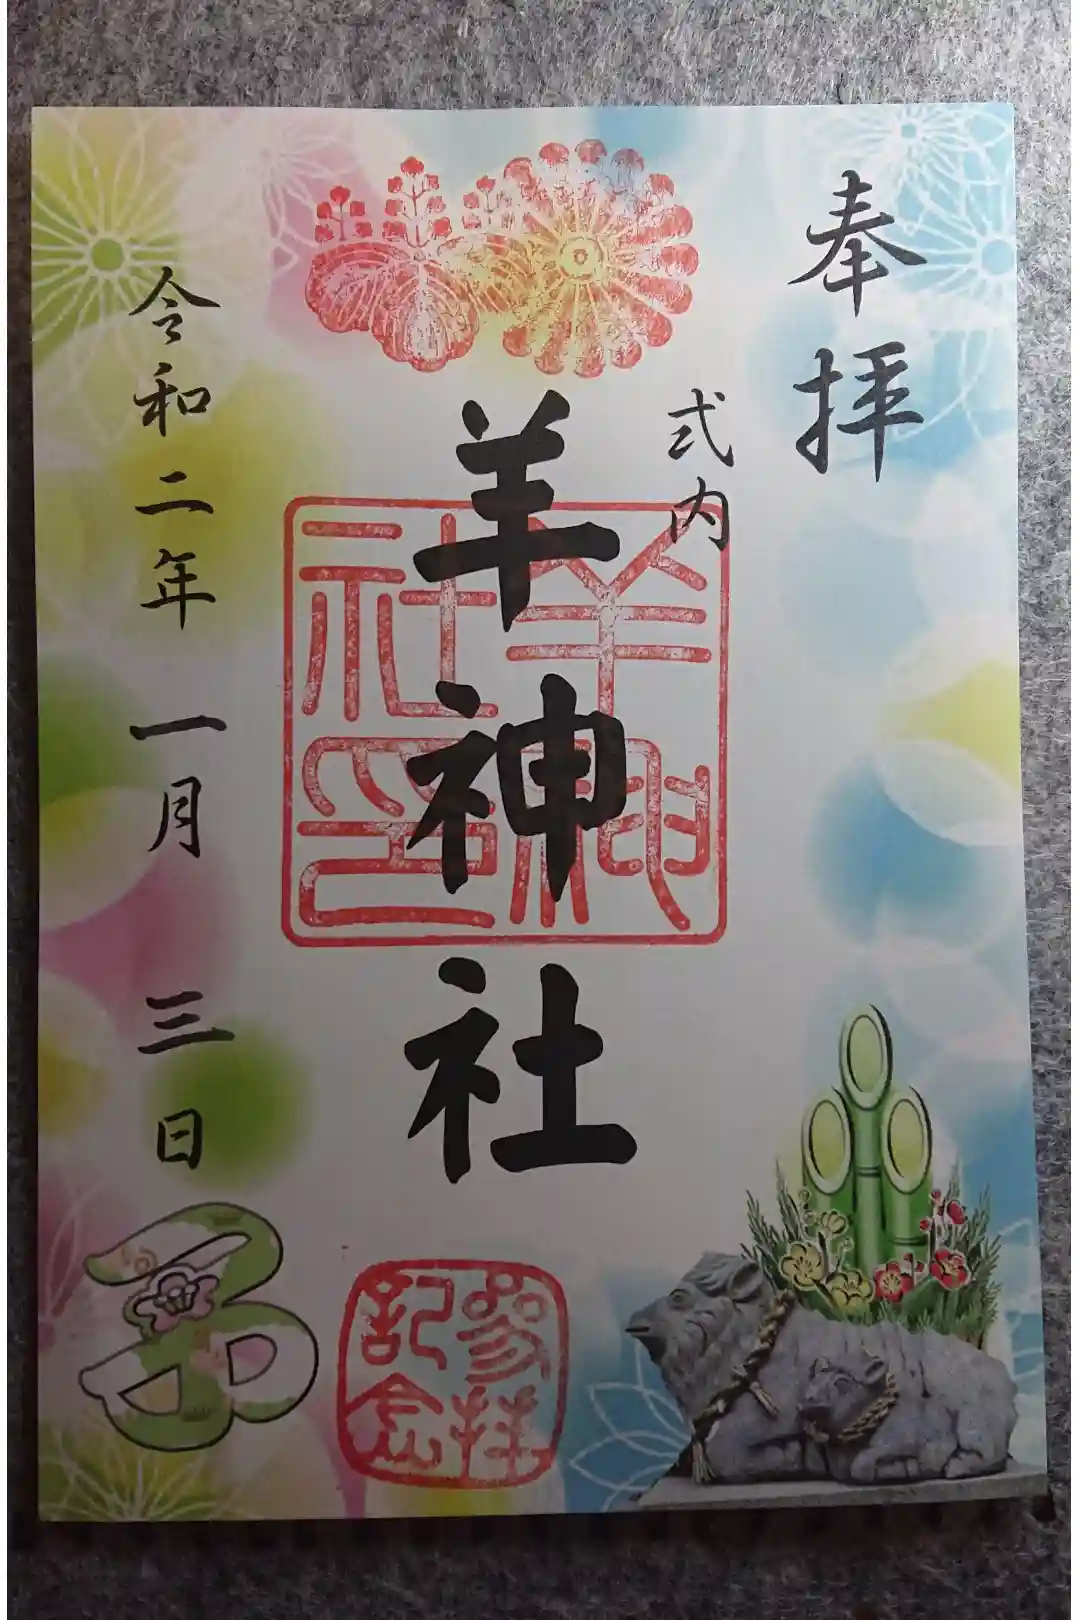 奉拝
式内
羊神社
羊神社印
令和二年 一月 三日
子
参拝
記念